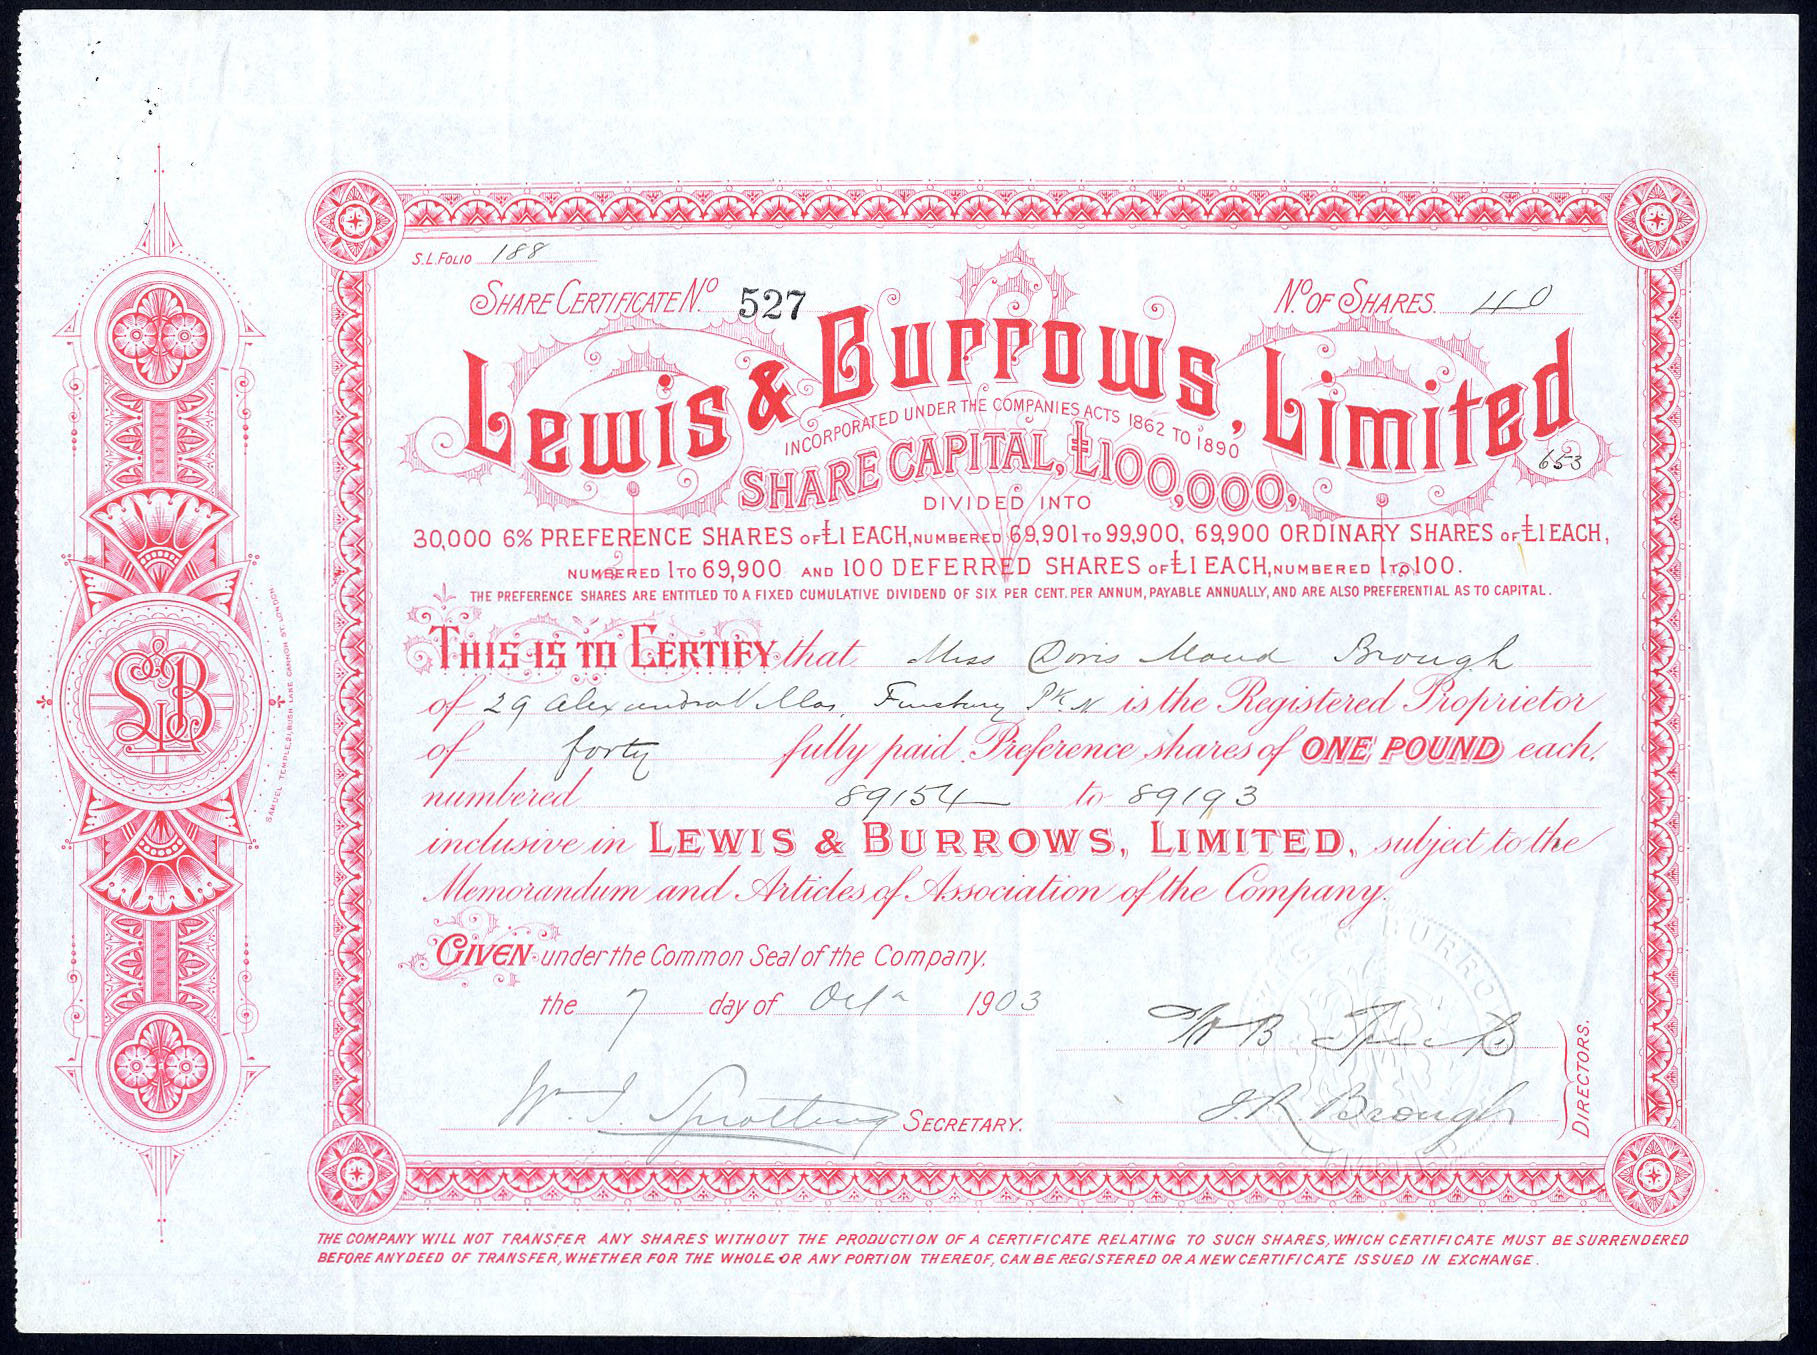 S.L. FOLIO 188
SHARE CERTIFICATE No. 527
No. OF SHARES. 40
LEWIS & BURROWS, LIMITED
653
INCORPORATED UNDER THE COMPANIES ACTS 1862 TO 1890
SHARE CAPITAL, £100,000,
DIVIDED INTO
30,000 6% PREFERENCE SHARES OF £1 EACH, NUMBERED 69,901 TO 99,900, 69,900 ORDINARY SHARES OF £1 EACH,
NUMBERED 1 TO 69,900 AND 100 DEFERRED SHARES OF £1 EACH, NUMBERED 1 TO 100.
THE PREFERENCE SHARES ARE ENTITLED TO A FIXED CUMULATIVE DIVIDEND OF SIX PER CENT. PER ANNUM, PAYABLE ANNUALLY, AND ARE ALSO PREFERENTIAL AS TO CAPITAL.
THIS IS TO CERTIFY that Miss Doris Maud Brough
of 29 Alexandra Villas, Finsbury Pk N is the Registered Proprietor
of forty fully paid Preference shares of ONE POUND each,
numbered 89154 to 89193
inclusive in LEWIS & BURROWS, LIMITED, subject to the
Memorandum and Articles of Association of the Company.
GIVEN under the Common Seal of the Company,
the 7 day of Oct 1903
SECRETARY.
J. R. Brough
DIRECTORS.
THE COMPANY WILL NOT TRANSFER ANY SHARES WITHOUT THE PRODUCTION OF A CERTIFICATE RELATING TO SUCH SHARES, WHICH CERTIFICATE MUST BE SURRENDERED
BEFORE ANY DEED OF TRANSFER, WHETHER FOR THE WHOLE OR ANY PORTION THEREOF, CAN BE REGISTERED OR A NEW CERTIFICATE ISSUED IN EXCHANGE.
L&B
SAMUEL TEMPLE, 21, BUSH LANE, CANNON ST. LONDON.
& BURROWS
LIMITED